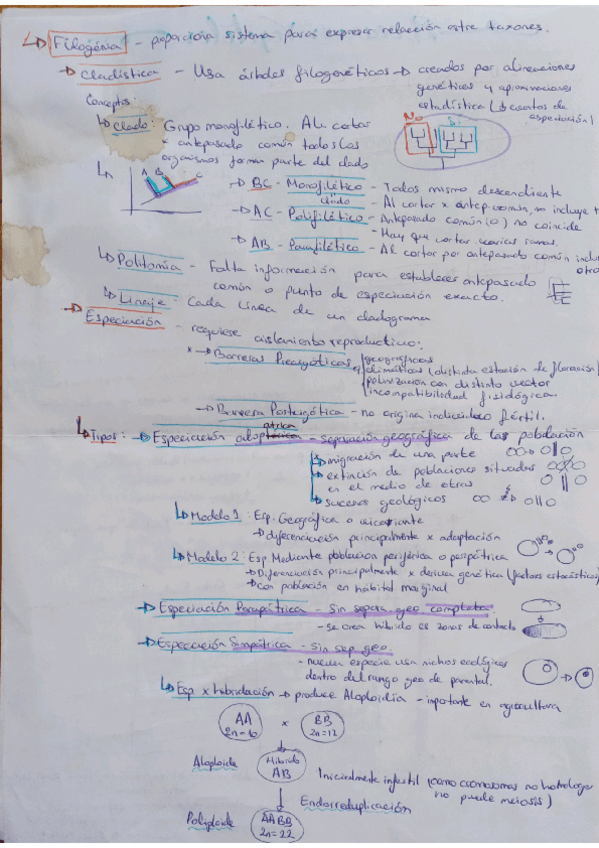 Filogénia - proporciona sistema para expresar relación entre taxones.
Cladística - Usa árboles filogenéticos → creados por alineaciones
genéticas y aproximaciones
estadística (↓ eventos de
especiación)
Conceptos:
Clado: Grupo monofilético. Al cortar
x antepasado común todos los
organismos forman parte del clado
No Si
A B C
BC - Monofilético - Todos mismo descendiente
clado
AC - Polifilético - Al cortar x antep. común, no incluye
Antepasado común (o) no coincide
- Hay que cortar varias ramas.
AB - Parafilético - Al cortar por antepasado común
Politomía - Falta información para establecer antepasado
común o punto de especiación exacto.
Lineaje: Cada línea de un cladograma
Especiación - requiere aislamiento reproductivo.
x → Barreras Precigóticas geográficas
climáticas (distinta estación de floración)
polinización con distinto vector
incompatibilidad fisiológica
→ Barrera Postcigótica - no origina individuo fértil.
Tipos: → Especiación alopátrica - separación geográfica de las población
migración de una parte
extinción de poblaciones situadas
en el medio de otras
sucesos geológicos
Modelo 1: Esp. Geográfica o vicariante
→ diferenciación principalmente x adaptación
Modelo 2: Esp Mediante poblacion periférica o peripátrica
→ Diferenciación principalmente x deriva genética (factores estocásticos)
→ con población en hábitat marginal
→ Especiación Parapátrica - Sin separa geo. completa
- se crea híbrido es zonas de contacto
→ Especiación Simpátrica - Sin sep. geo.
- nueva especie usa nichos ecológicos
dentro del rango geo de parental.
Esp x hibridación → produce Aloploidía - inportante en agricultura
AA × BB
2n=10 2n=12
Aloploide Híbrido
AB
Inicialmente infertil (como cromosomas no homologos
no puede meiosis)
Endorreduplicación
Poliploide AABB
2n=22